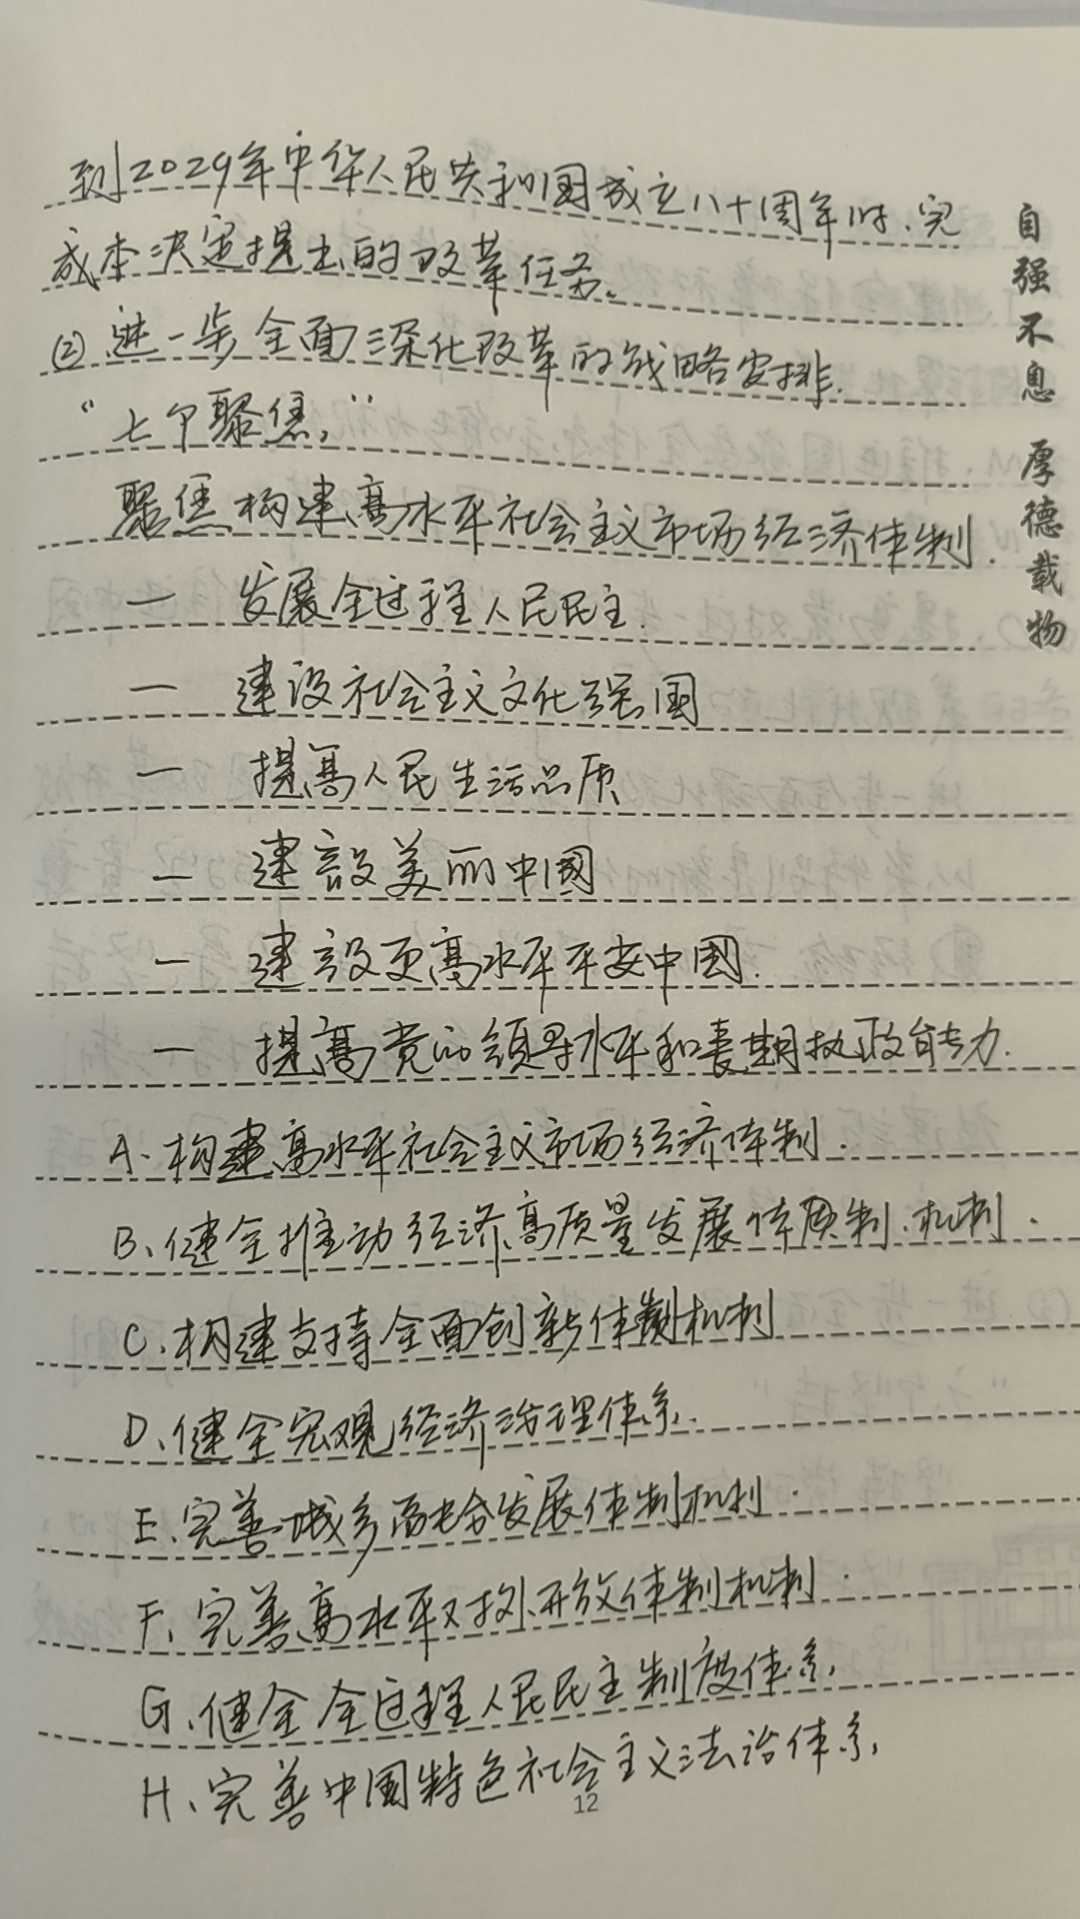 到2029年中华人民共和国成立八十周年时,完
成本决定提出的改革任务。
(2)进一步全面深化改革的战略安排.
“七个聚焦,”
聚焦构建高水平社会主义市场经济体制.
— 发展全过程人民民主.
— 建设社会主义文化强国
— 提高人民生活品质
— 建設美丽中國
— 建設更高水平平安中國.
— 提高党的領导水平和長期执政能力.
A、构建高水平社会主义市场经济体制.
B、健全推动经济高质量发展体质制、机制.
C、构建支持全面创新体制机制
D、健全宏观经济治理体系.
E、完善城乡融合发展体制机制.
F、完善高水平对外开放体制机制.
G、健全全过程人民民主制度体系,
H、完善中国特色社会主义法治体系,
12
自强不息 厚德载物